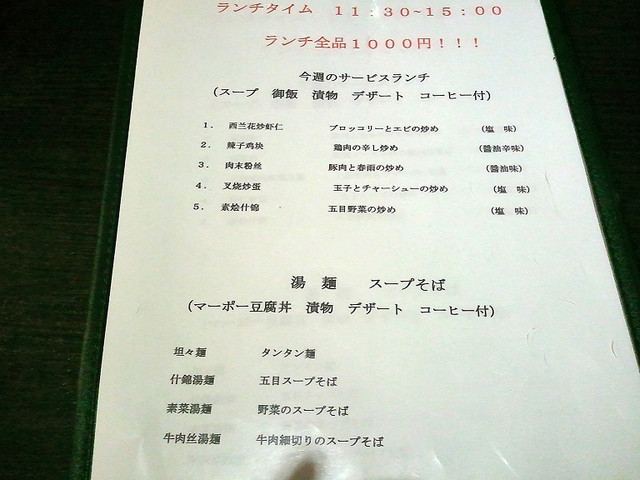 ランチタイム　１１：30~１５：００
ランチ全品１０００円！！！
今週のサービスランチ
（スープ　御飯　漬物　デザート　コーヒー付）
１．　西兰花炒虾仁　ブロッコリーとエビの炒め　（塩　味）
２．　辣子鸡块　鶏肉の辛し炒め　（醤油辛味）
３．　肉末粉丝　豚肉と春雨の炒め　（醤油味）
４．　叉烧炒蛋　玉子とチャーシューの炒め　（塩　味）
５．　素烩什錦　五目野菜の炒め　（塩　味）
湯　麺　　スープそば
（マーボー豆腐丼　漬物　デザート　コーヒー付）
坦々麺　タンタン麺
什錦湯麺　五目スープそば
素菜湯麺　野菜のスープそば
牛肉丝湯麺　牛肉細切りのスープそば